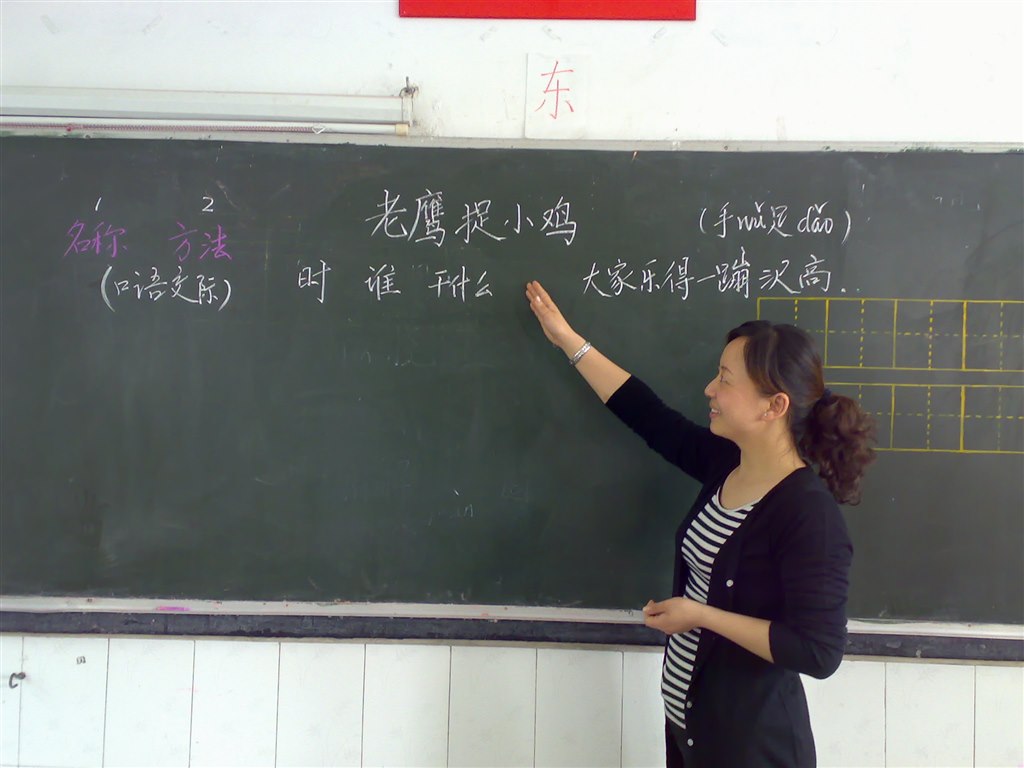 东
1 2 老鹰捉小鸡 (手wǔ足dǎo)
名称 方法
(口语交际) 时 谁 干什么 大家乐得一蹦沢高..